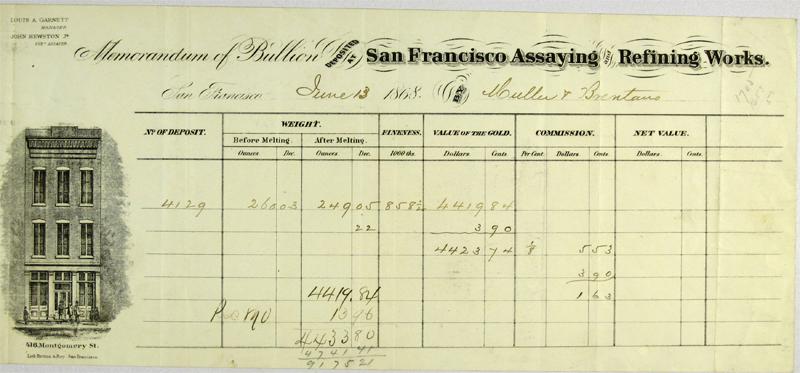 LOUIS A. GARNETT
MANAGER
JOHN HEWSTON Jr.
Memorandum of Bullion DEPOSITED AT San Francisco Assaying and Refining Works.
San Francisco June 13 1868. BY Muller & Brentano
No. OF DEPOSIT. WEIGHT. FINENESS. VALUE OF THE GOLD. COMMISSION. NET VALUE.
Before Melting. After Melting.
Ounces Dec. Ounces Dec. 1000 ths. Dollars Cents Per Cent. Dollars Cents Dollars. Cents.
4129 260 03 249 05 858 1/2 4419 84
22 3 90
4423 74 1/8 5 53
3 90
1 63
4419.84
13 96
4433 80
4741 41
9175 21
416 Montgomery St.